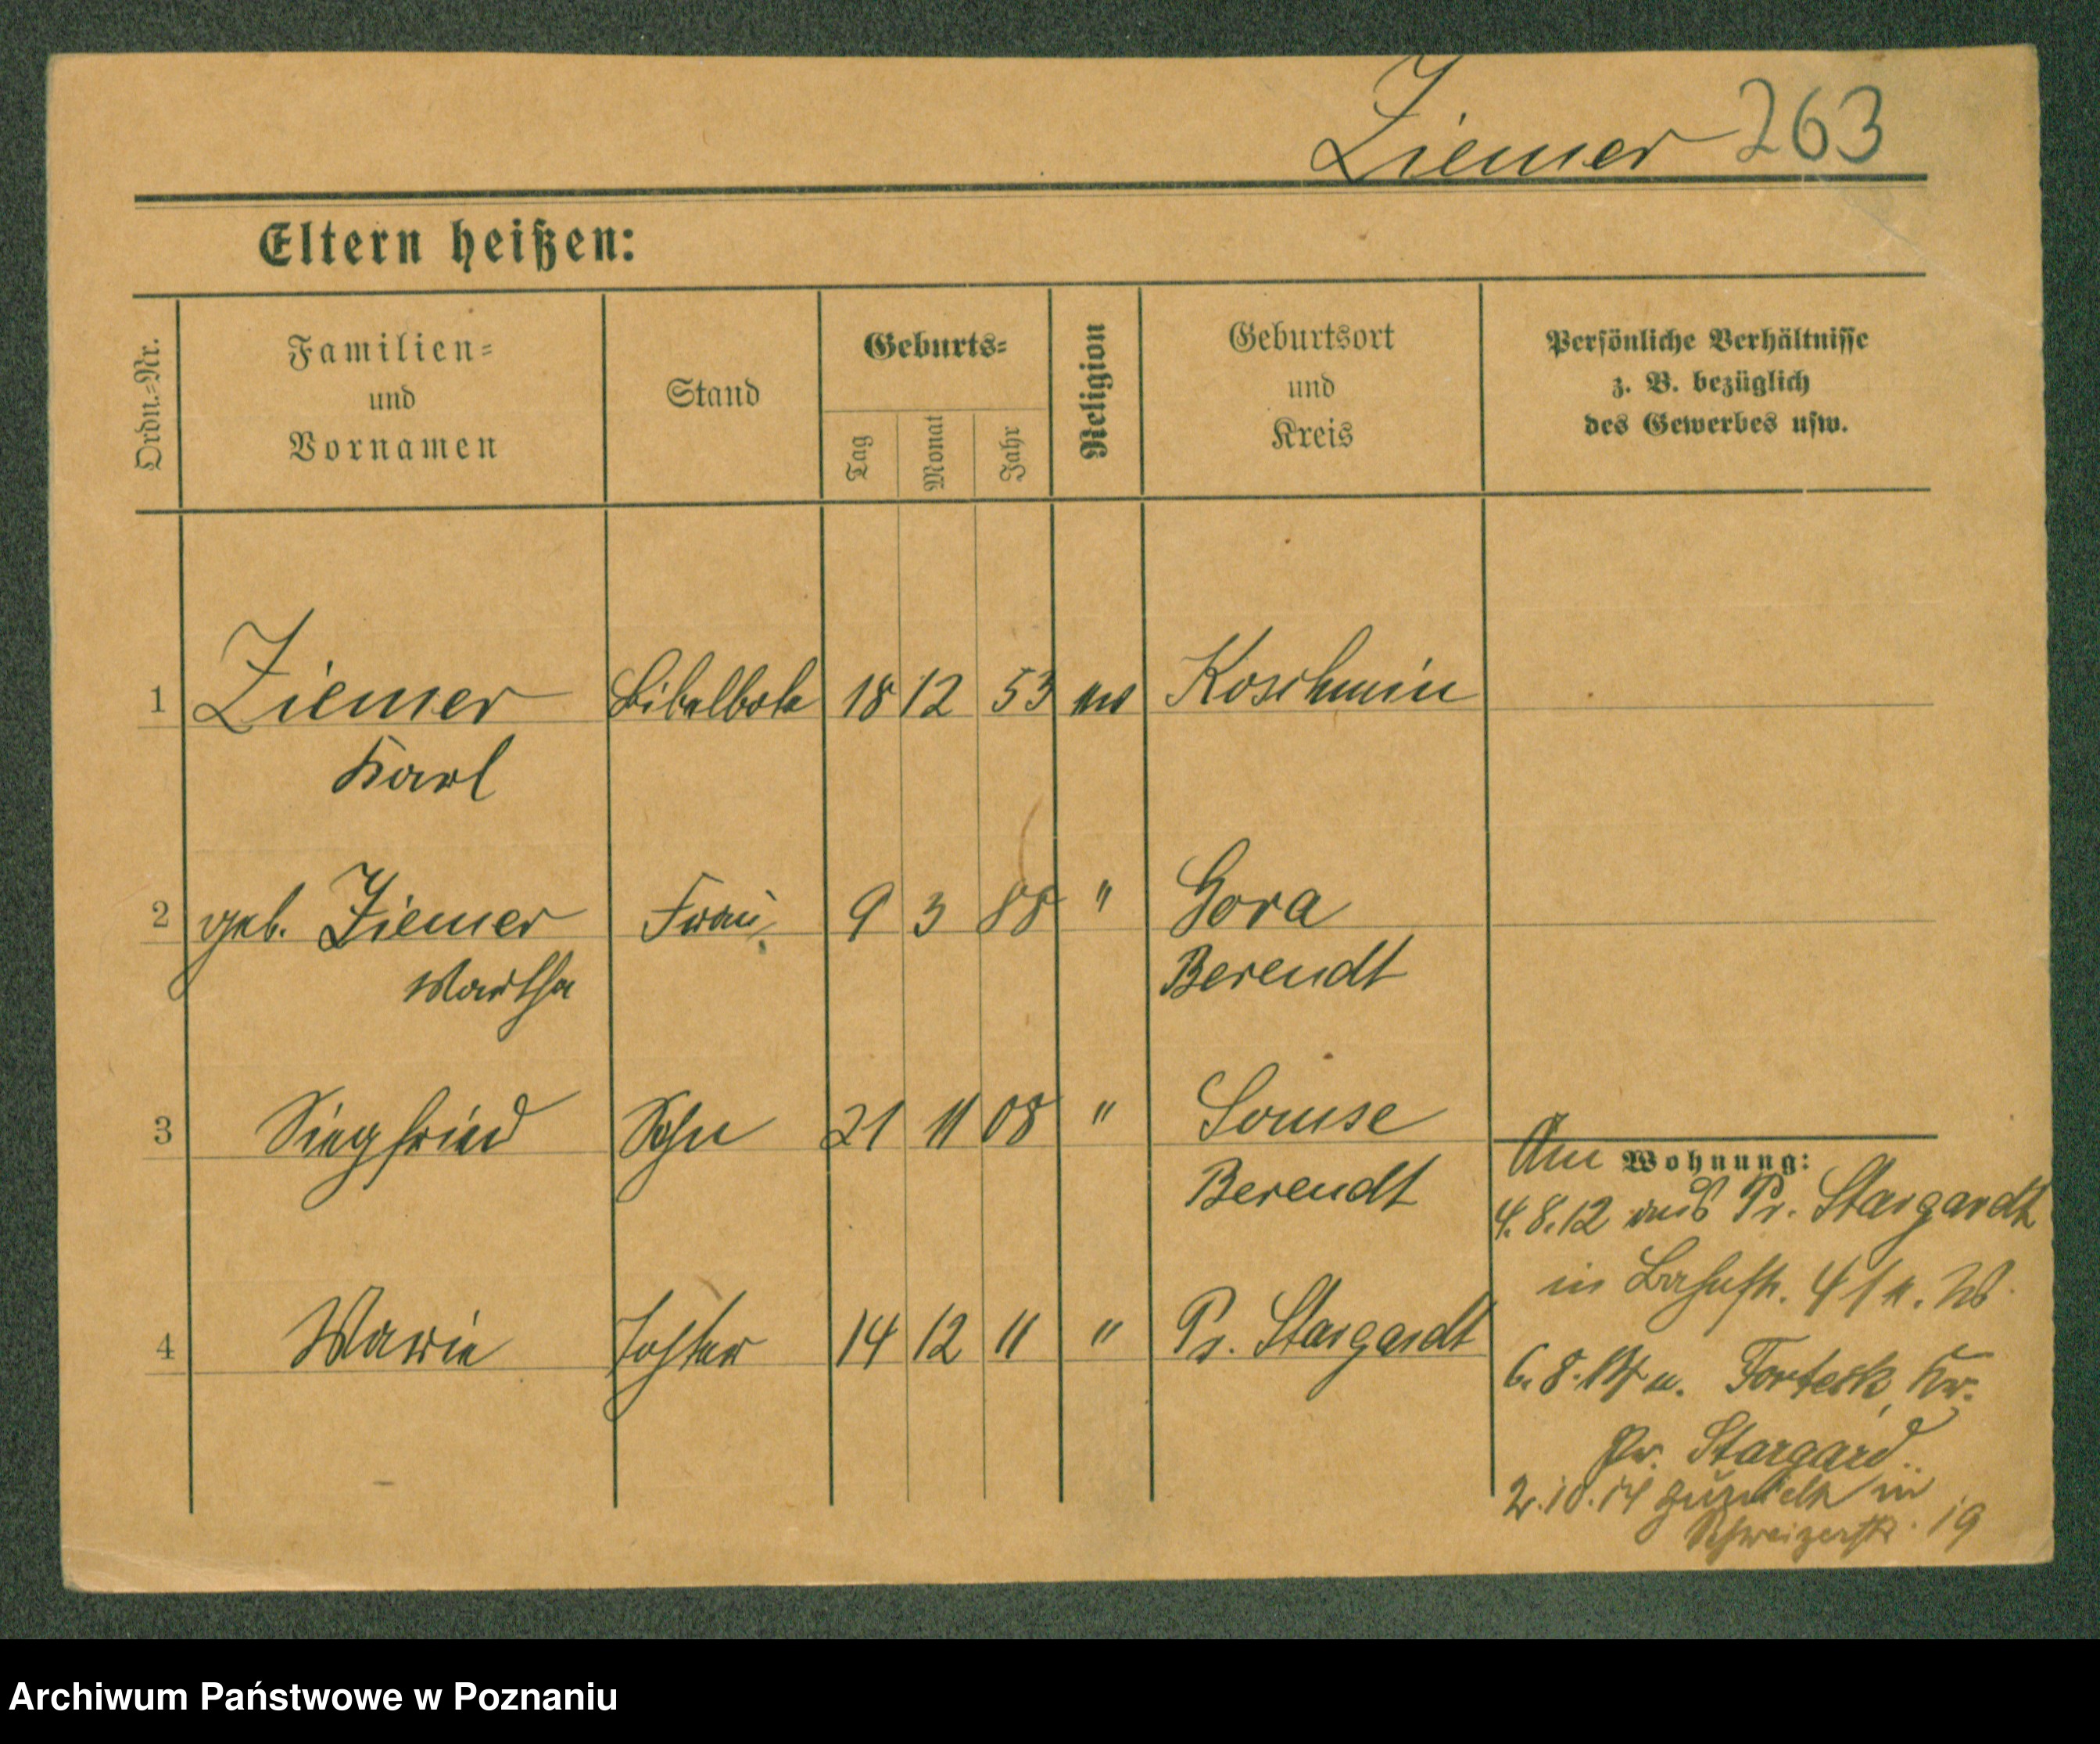 Ziemer 263
Eltern heißen:
Ordn.=Nr.
Familien=
und
Vornamen
Stand
Geburts=
Tag
Monat
Jahr
Religion
Geburtsort
und
Kreis
Persönliche Verhältnisse
z. B. bezüglich
des Gewerbes usw.
1 Ziemer Bibelbote 18 12 53 ev Koschmin
Karl
2 geb. Ziemer Frau 9 3 88 " Gora
Martha Berendt
3 Siegfried Sohn 21 11 08 " Sonnse
Berendt
4 Marie Tochter 14 12 11 " Pr. Stargardt
Am Wohnung:
4.8.12 aus Pr. Stargardt
in Bahnfstr. 41
6.8.14 n. Kr.
Pr. Stargard.
2.10.14 zurück in
Schweizerstr. 19
Archiwum Państwowe w Poznaniu